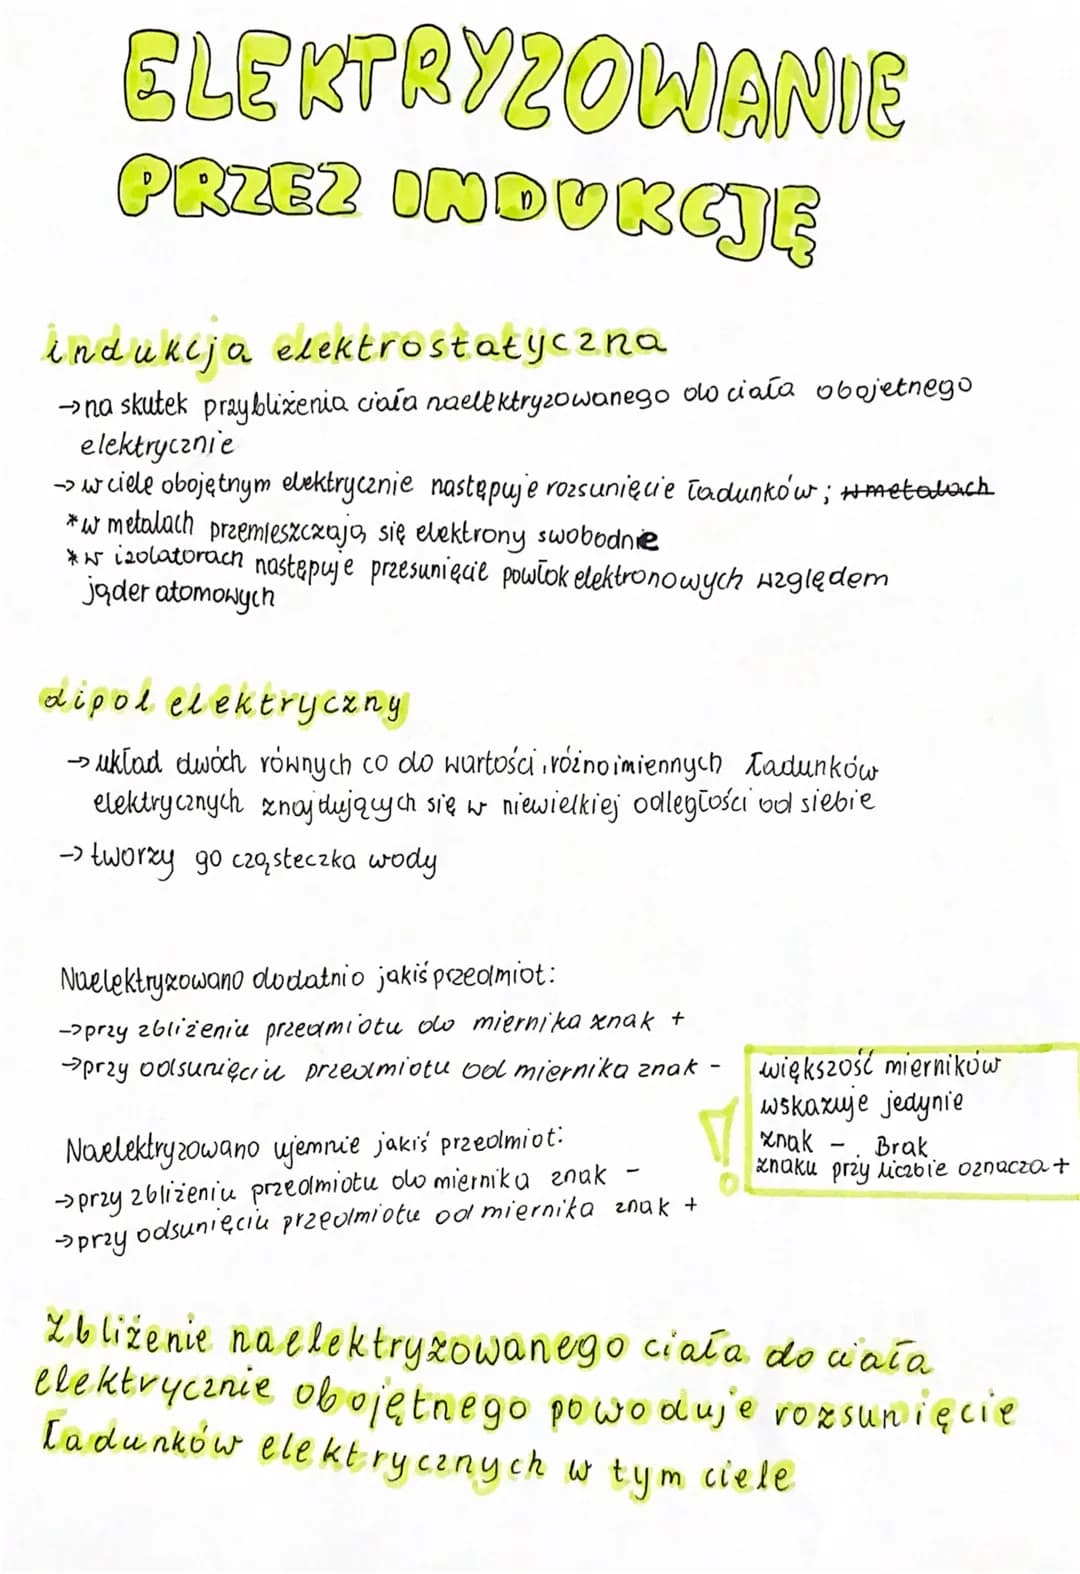 ELEKTRYZOWANIE
PRZEZ INDUKCJĘ
indukcja elektrostatyczna
→ na skutek przybliżenia ciała naelektryzowanego do ciała obojętnego
elektrycznie
→ w ciele obojętnym elektrycznie następuje rozsunięcie ładunków; w metalach
* w metalach przemieszczają się elektrony swobodnie
* w izolatorach następuje przesunięcie powłok elektronowych względem
jąder atomowych
dipol elektryczny
→ układ dwóch równych co do wartości, różnoimiennych ładunków
elektrycznych znajdujących się w niewielkiej odległości od siebie
→ tworzy go cząsteczka wody
Naelektryzowano dodatnio jakiś przedmiot:
→ przy zbliżeniu przedmiotu do miernika znak +
→ przy odsunięciu przedmiotu od miernika znak -
większość mierników
wskazuje jedynie
znak - . Brak
znaku przy liczbie oznacza +
!
Naelektryzowano ujemnie jakiś przedmiot:
→ przy zbliżeniu przedmiotu do miernika znak -
→ przy odsunięciu przedmiotu od miernika znak +
Zbliżenie naelektryzowanego ciała do ciała
elektrycznie obojętnego powoduje rozsunięcie
ładunków elektrycznych w tym ciele